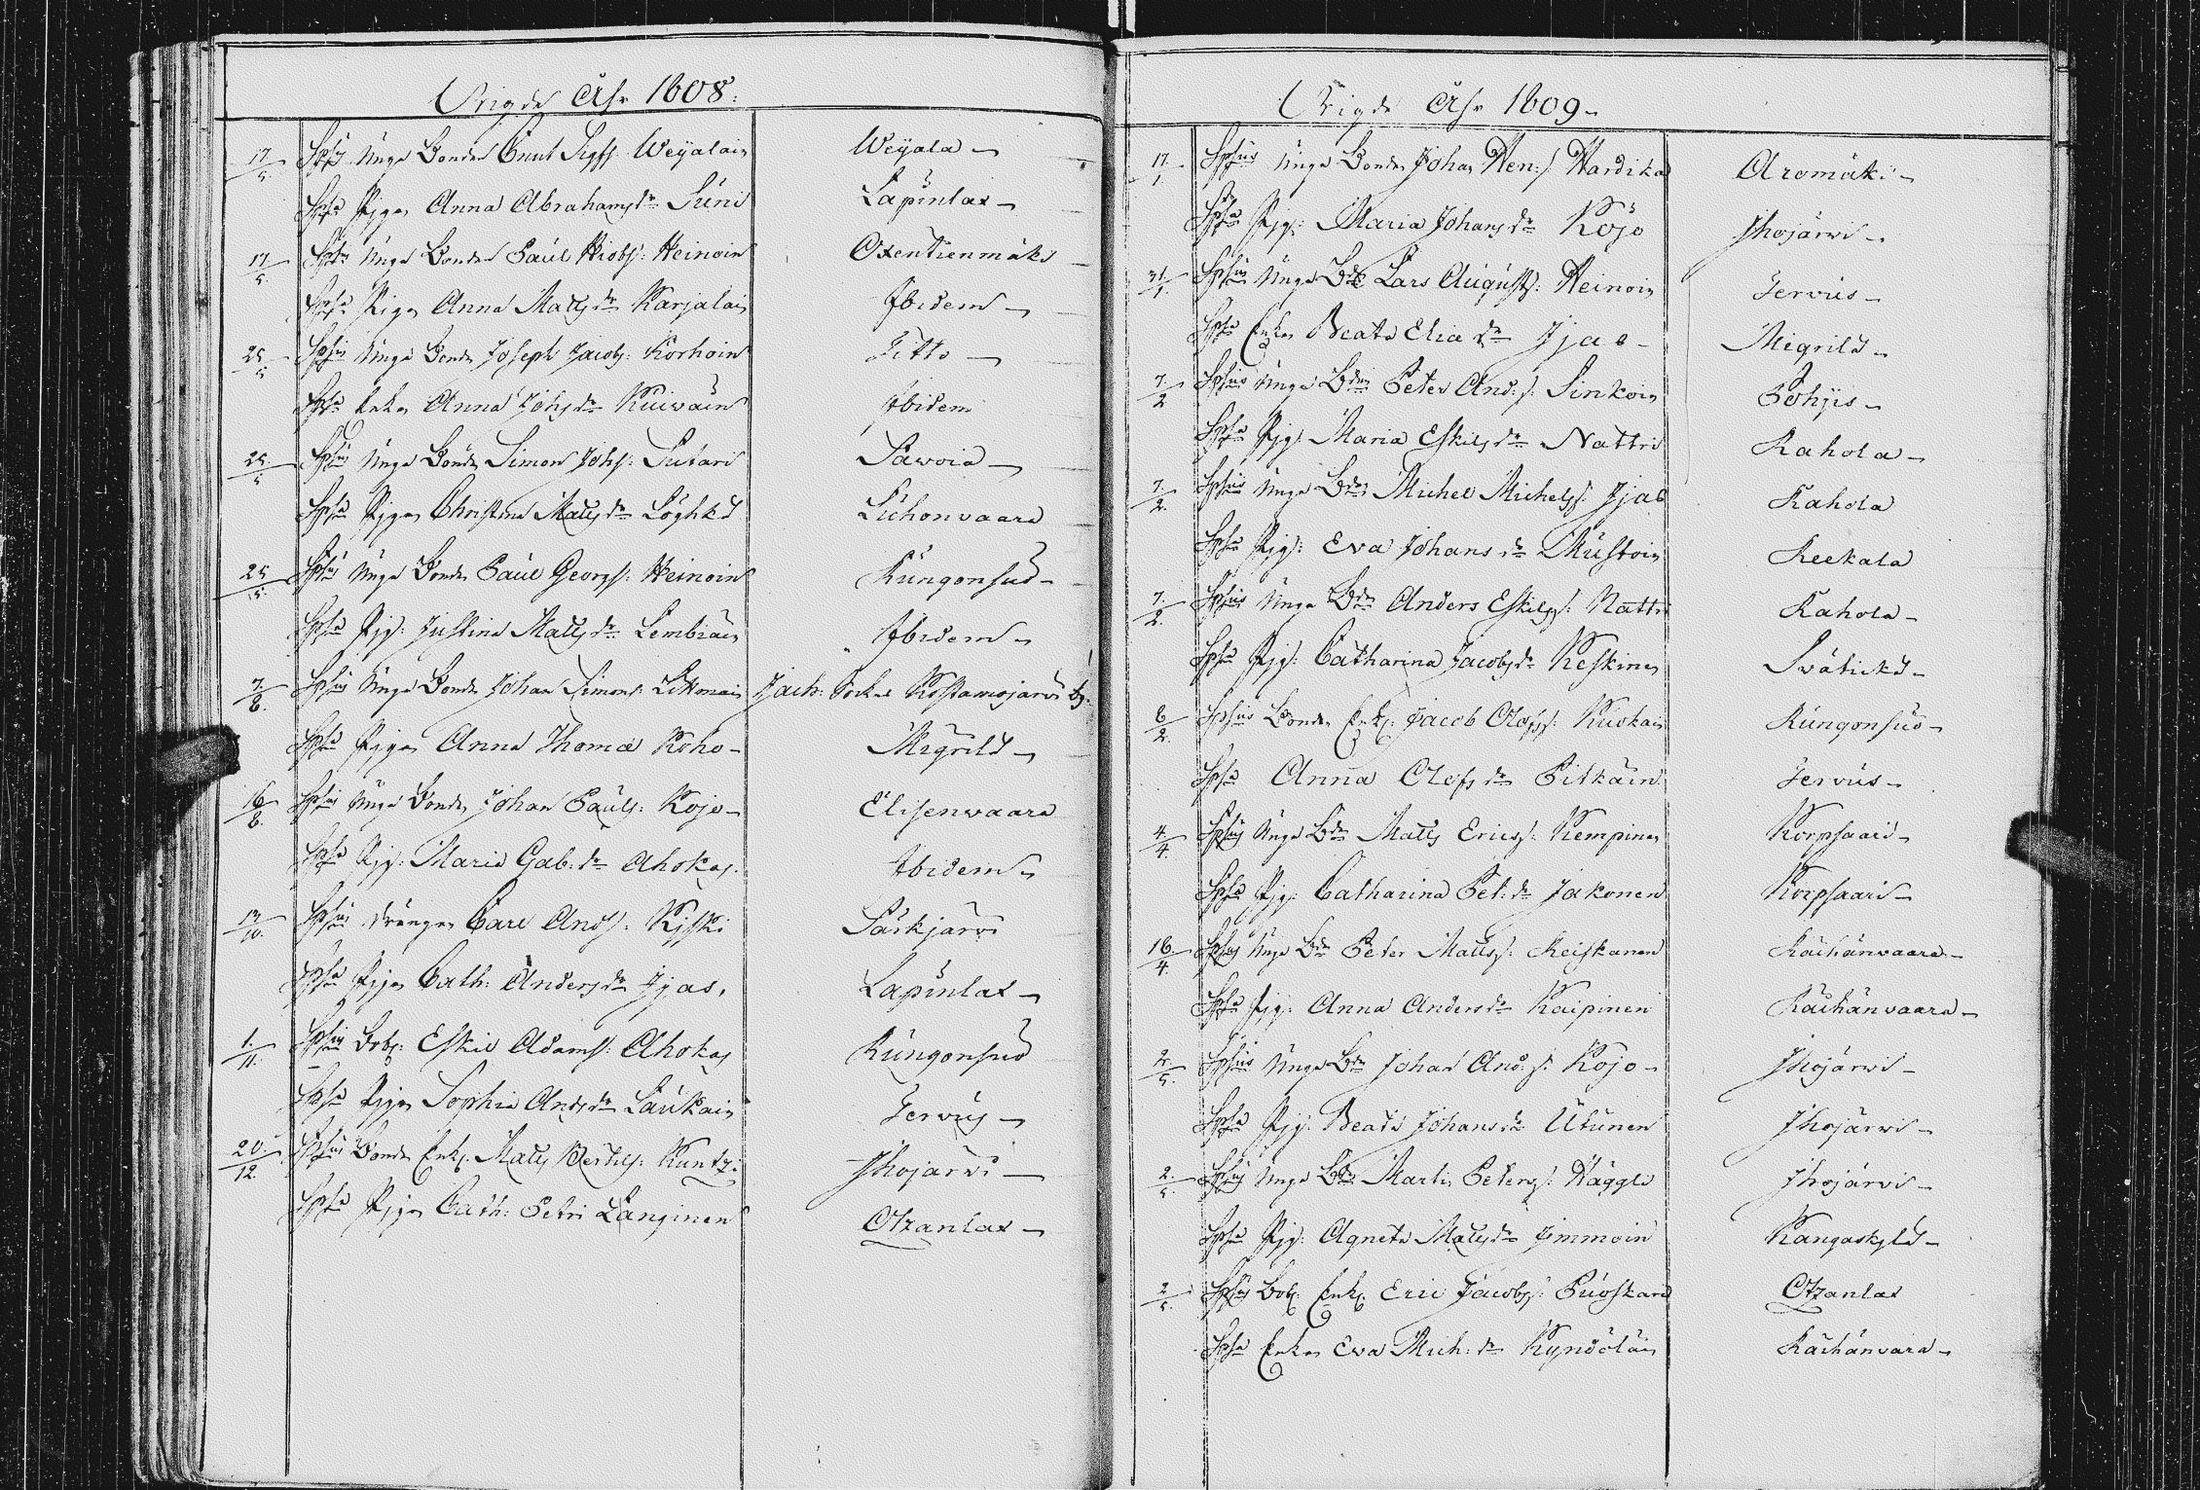 Wigde Åhr 1808:
17/5. Sps: Unge Bonden Cnut Sigfs: Weijalain Weijala
Spsa Pigan Anna Abrahamsdr Suni Lapinlax
17/5. Sps: Unge Bonden Paul Hiobs: Heinoin Oxentienmäki
Spsa Pigan Anna Matsdr Karjalain Ibidem
25/5 Spsus Unge Bonde Joseph Jacobs: Korhoin Titto
Spsa Enkan Anna Johsdr Kuivain Ibidem
25/5 Spsus Unge Bonden Simon Johs: Sutari Sawoia
Spsa Pigan Christina Matsdr Löghkä Luhonvaara
25/5. Spsus Unge Bonden Paul Georgs: Heinoin Kungonsuo
Spsa Pig: Justina Matsdr Lembiäin Ibidem
7/8. Spsus Unge Bonde Johan Simons: Litmain Jach: Sockn Kostamojärvi by.
Spsa Pigan Anna Thomæ Koho Migrilä
16/8. Spsus Unge Bonden Johan Pauls: Kojo Elisenvaara
Spsa Pig: Maria Gab:dr Ahokas. Ibidem
13/10. Spsus drängen Carl Ands: Kiiski Särkjärvi
Spsa Pigan Cath: Andersdr Ijas. Lapinlax
1./11. Spsus Bobs: Eskil Adams: Ahokas Kungonsuo
Spsa Pigan Sophia Andsdr Laukain Jervus
20./12. Spsus Bonden Enkl. Mats Bertils: Kuntzi Ihojärvi
Spsa Pigan Cath: Petri Länginen Otzanlax
Wigde Åhr 1809
17/1. Spsus Unge Bonden Johan Hen:s Hardika Aromäki
Spsa Pig: Maria Johansdr Kojo Ihojärvi
31/1. Spsus Unge Bde Lars Augusts: Heinoin Jervus
Spsa Enkan Beata Eliædr Ijas Migrilä
7/2 Spsus Unge Bden Peter And:s: Sinkoin Pohjis
Spsa Pig: Maria Eskilsdr Nattri Rahola
7/2. Spsus Unge Bden Michel Michels: Ijas Rahola
Spsa Pig: Eva Johansdr Mustoin Reekala
7./2. Spsus Unge Bden Anders Eskils: Nattri Rahola
Spsa Pig: Catharina Jacobsdr Keskinen Svätickä
8/2. Spsus Bonden Enkl: Jacob Olofs: Kuokain Kungonsuo
Spsa Anna Olofsdr Pitkäin Jervus
4./4. Spsus Unge Bden Mats Erics: Kempinen Korpsaari
Spsa Pig: Catharina Pet:dr Jakonen Korpsaari
16./4. Spsus Unge Bde Peter Mats: Keiskanen Räihänvaara
Spsa Pig: Anna Andersdr Kaipinen Räihänvaara
2./5. Spsus Unge Bden Johan And:s: Kojo Ihojärvi
Spsa Pig: Beata Johansdr Utunen Ihojärvi
2./5. Spsus Unge Bden Martin Peters: Häggli Ihojärvi
Spsa Pig: Agneta Matsdr Immoin Kangaskylä
2/5. Spsus Bobs: Enkl: Eric Jacobs: Puoskari Otzanlax
Spsa Enkan Eva Mich:dr Kyndöläin Räihänvara